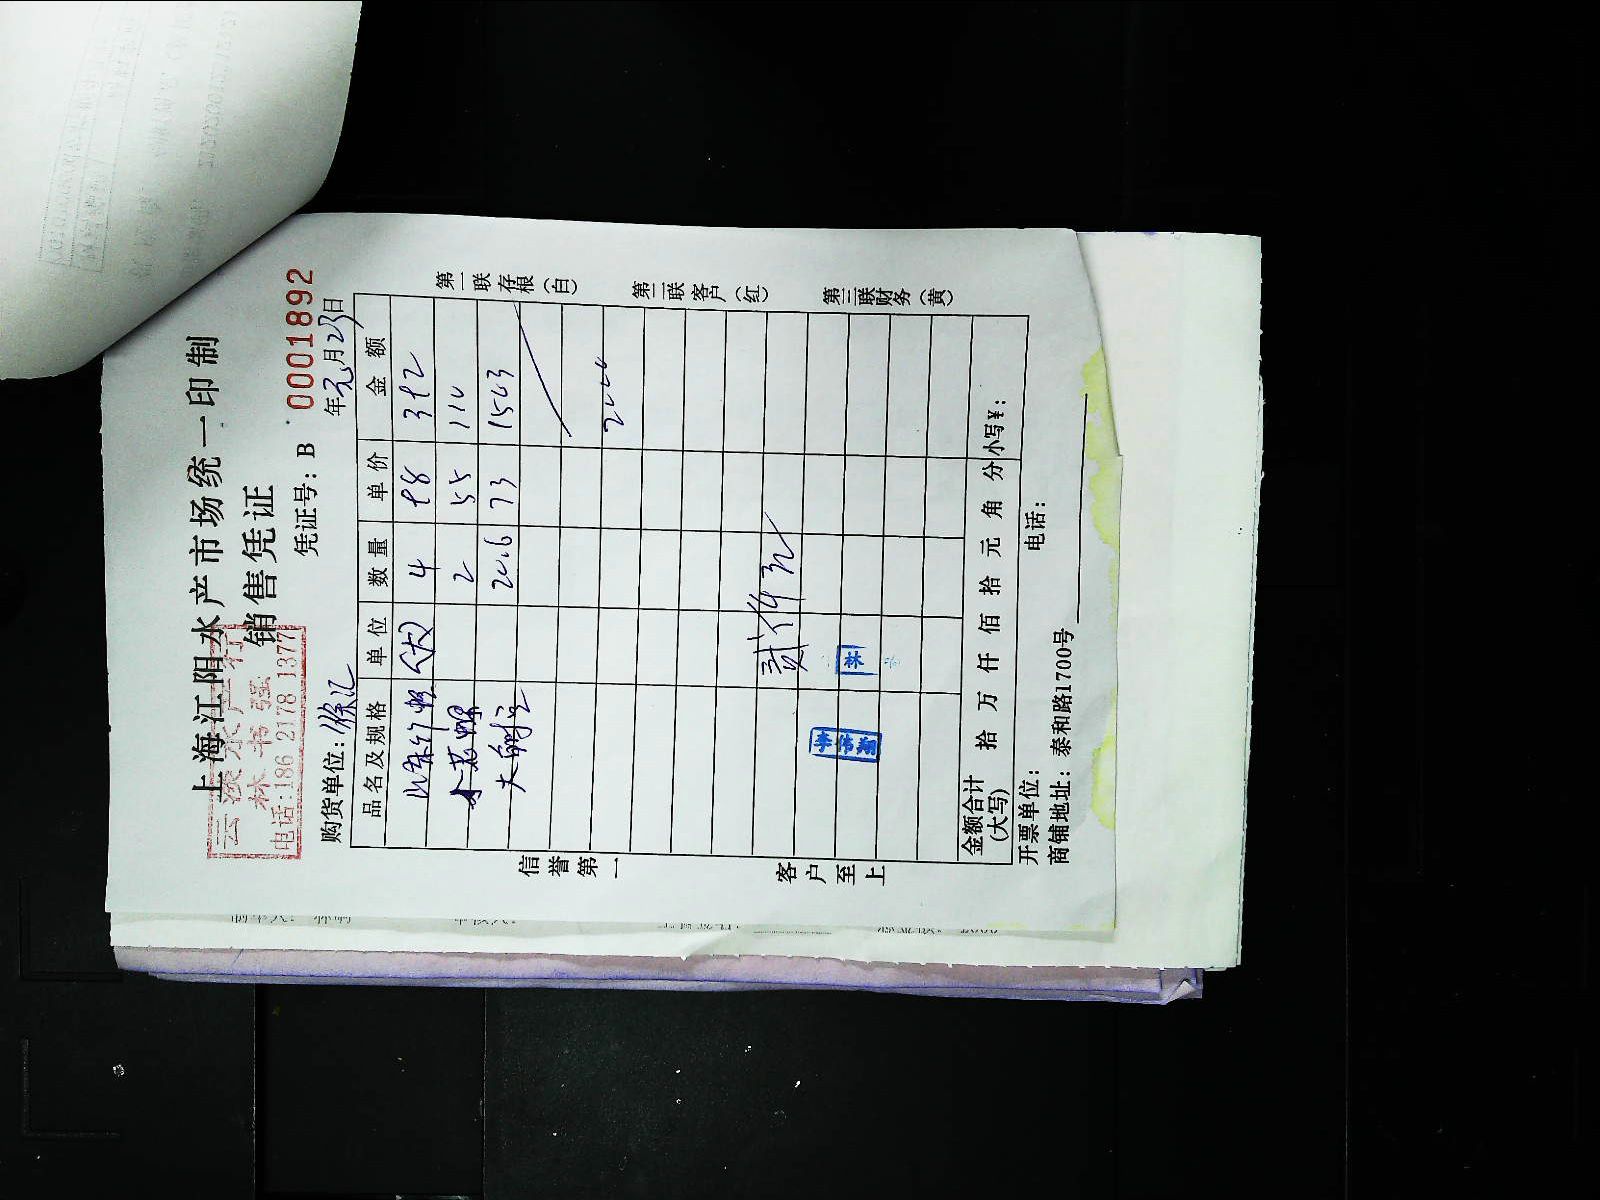 上海江阳水产市场统一印制
销售凭证
云溪水产行
林书强
电话:186 2178 1377
凭证号: B 0001892
购货单位: 徐汇
年元月23日
品名及规格 单位 数量 单价 金额
(大) 4 98 392
2 55 110
20.6 73 1503
2000
李伟翔
林
金额合计(大写) 拾 万 仟 佰 拾 元 角 分 小写¥:
开票单位: 电话:
商铺地址: 泰和路1700号
信誉第一
客户至上
第一联存根(白)
第二联客户(红)
第三联财务(黄)